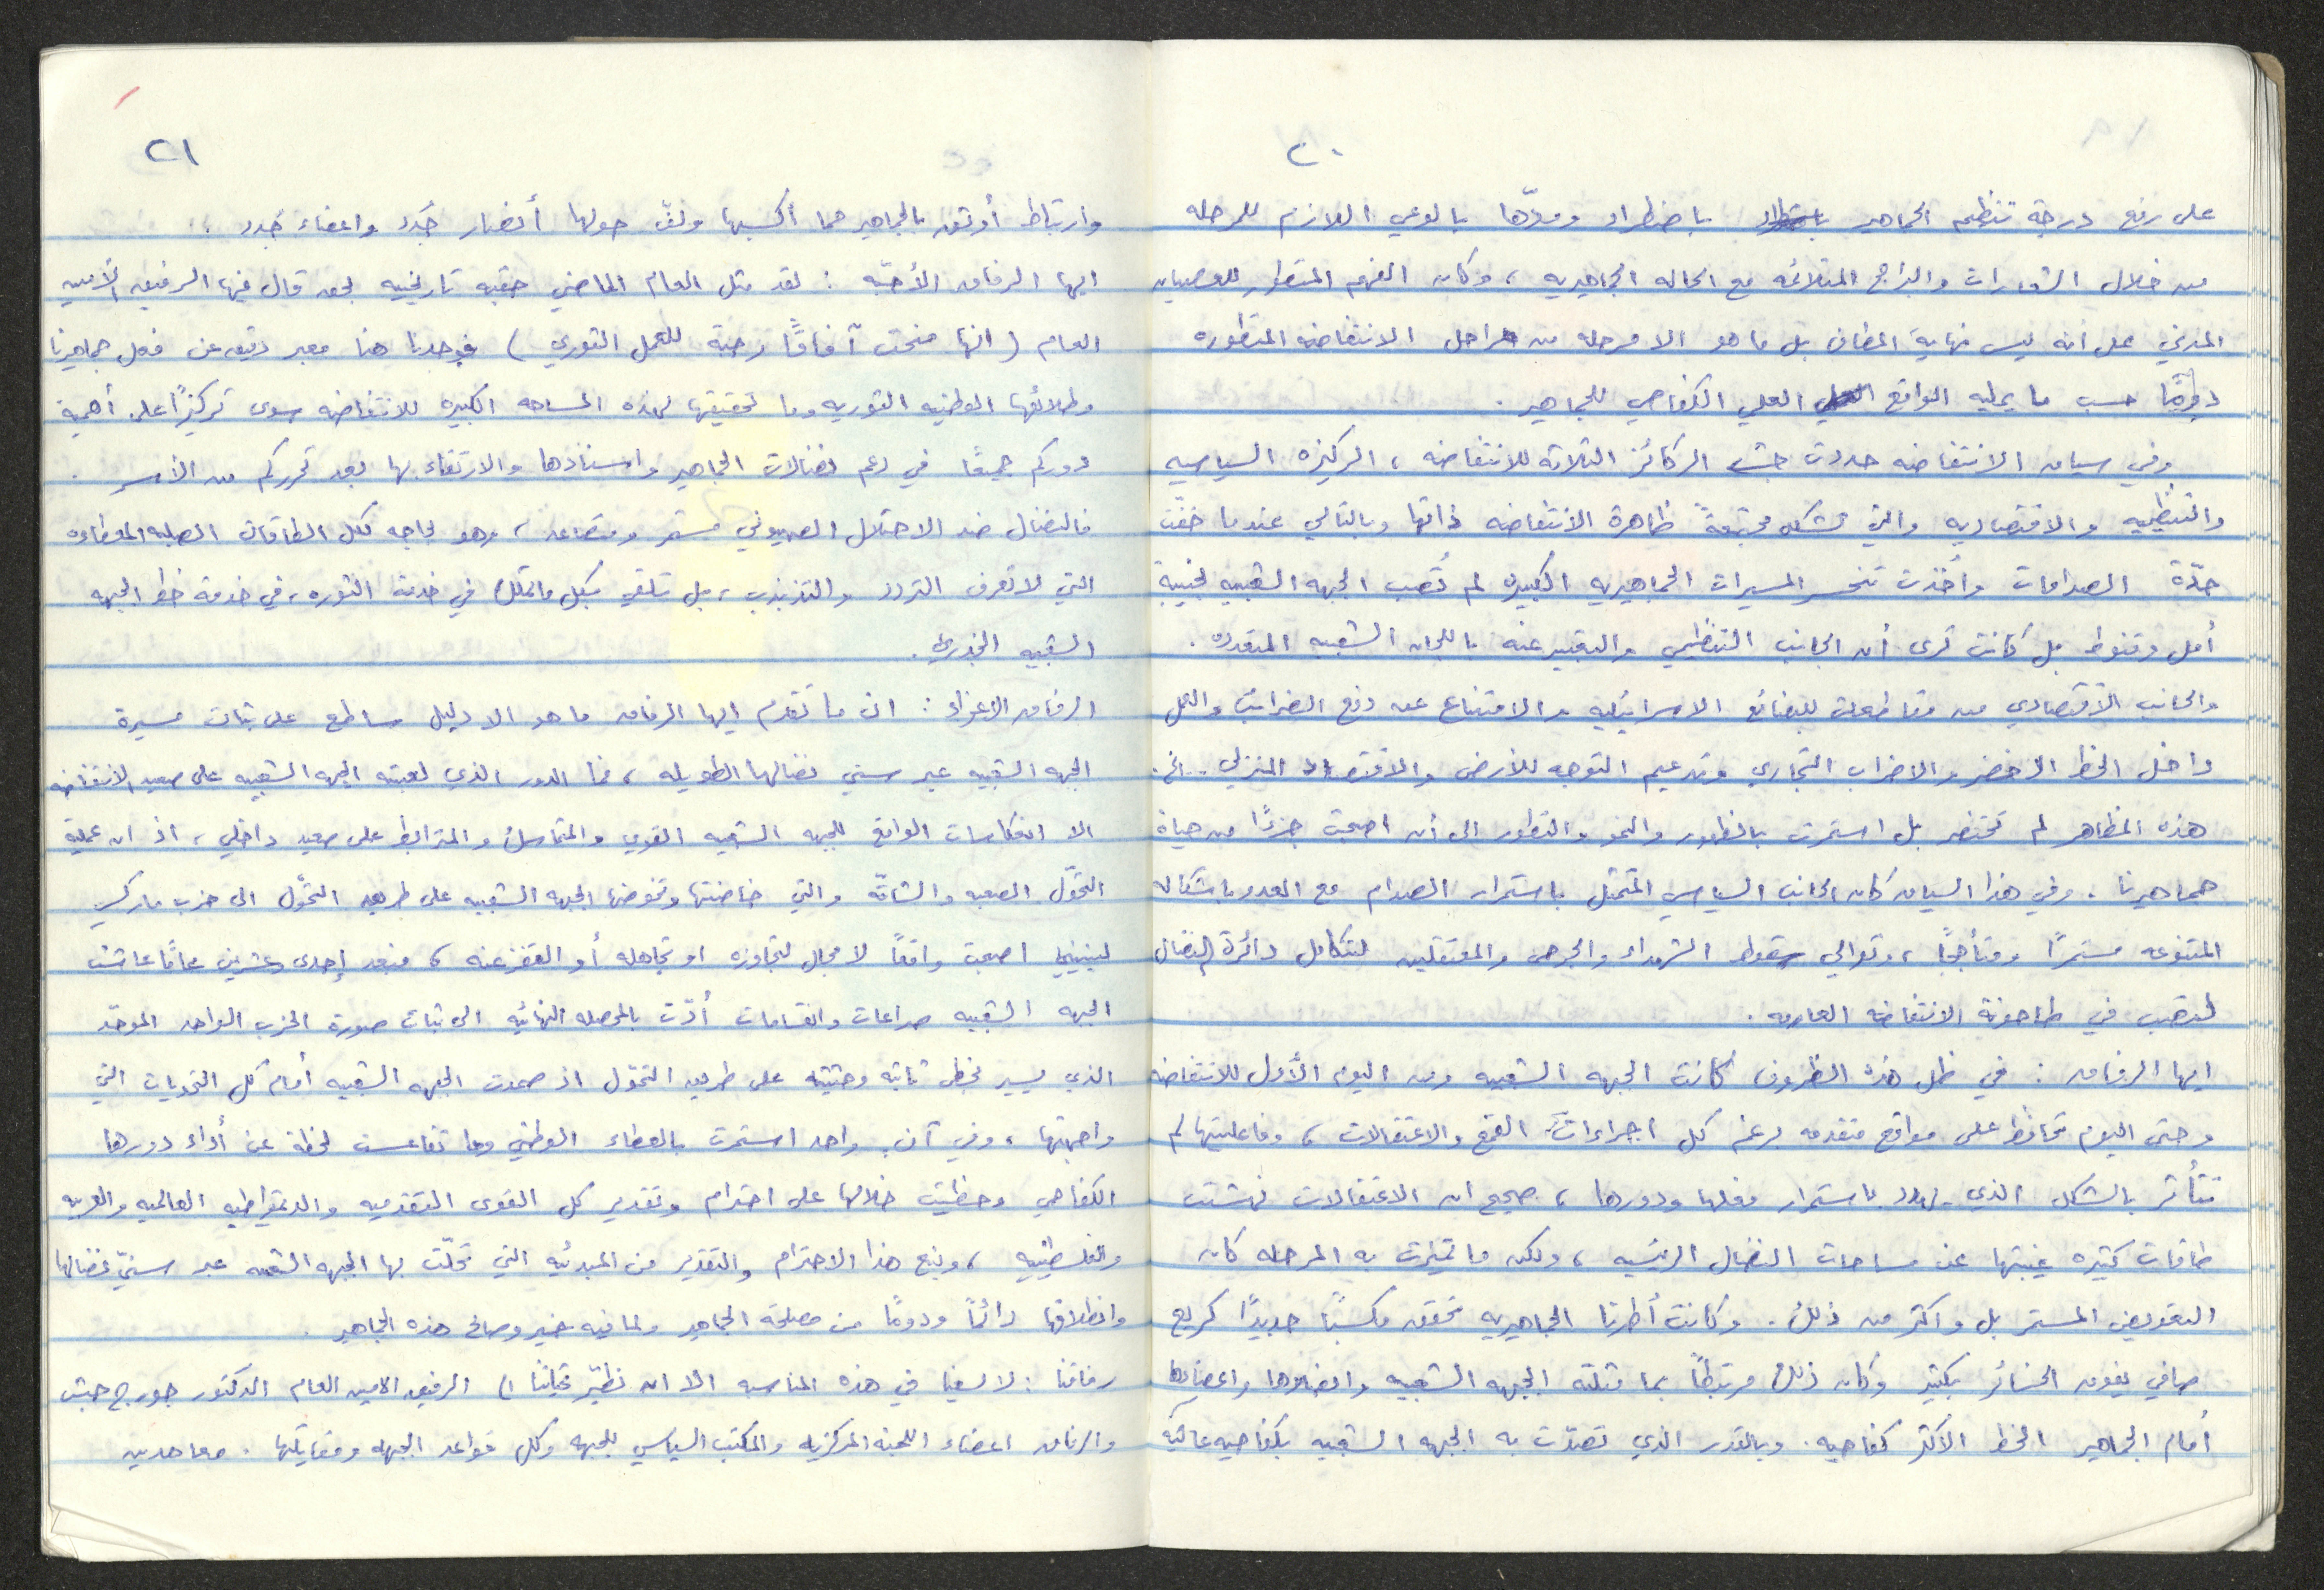 ٢٠
على رفع درجة تنظيم الجماهير باضطراد ومدّها بالوعي اللازم للمرحله
من خلال الشعارات والبرامج المتلائمه مع الحاله الجماهيريه ، وكان الفهم المتطور للعصيان
المدني على أنه ليس نهاية المطاف بل ما هو الا مرحله من مراحل الانتفاضه المتطوره
دومًا حسب ما يمليه الواقع العملي الكفاحي للجماهير .
وفي سياق الانتفاضه حددت جبـ ش الركائز الثلاثه للانتفاضه ، الركيزه السياسيه
والتنظيميه والاقتصاديه والتي تشكل مجتمعةً ظاهرة الانتفاضه ذاتها وبالتالي عندما خفّت
حدّة الصدامات وأخذت تنحسر المسيرات الجماهيريه الكبيره لم تُصب الجبهه الشعبيه بخيبة
أمل وقنوط بل كانت ترى أن الجانب التنظيمي والتعبير عنه باللجان الشعبيه المتعدده .
والجانب الاقتصادي من مقاطعة للبضائع الاسرائيليه والامتناع عن دفع الضرائب والعمل
داخل الخط الاخضر والاضراب التجاري وتدعيم التوجه للأرض والاقتصاد المنزلي .. الخ .
هذه المظاهر لم تحتضر بل استمرت بالظهور والنمو والتطور الى أن اصبحت جزءًا من حياة
جماهيرنا . وفي هذا السياق كان الجانب السياسي المتمثل باستمرار الصدام مع العدو باشكاله
المتنوعه مستمرًا ومتأججًا ، وتوالي سقوط الشهداء والجرحى والمعتقلين لتتكامل دائرة النضال
لتصب في طاحونة الانتفاضه العارمه .
ايها الرفاق : في ظل هذه الظروف كانت الجبهه الشعبيه ومن اليوم الأول للانتفاضه
وحتى اليوم تحافظ على مواقع متقدمه برغم كل اجراءات القمع والاعتقالات ، وفاعليتها لم
تتأثر بالشكل الذي يهدد باستمرار فعلها ودورها ، صحيح ان الاعتقالات نهشت
طاقات كثيره غيبتها عن ساحات النضال الرئيسيه ، ولكن ما تميزت به المرحله كان
التعويض المستمر بل واكثر من ذلك . وكانت أطرنا الجماهيريه تحقق مكسبًا جديدًا كربح
صافي يفوق الخسائر بكثير وكان ذلك مرتبطًا بما مثلته الجبهه الشعبيه وانصارها واعضائها
أمام الجماهير الخط الاكثر كفاحيه . وبالقدر الذي تصدّت به الجبهه الشعبيه بكفاحيه عاليه
٢١
وارتباط أوثق بالجماهير مما أكسبها ولفّ حولها أنصار جُدد واعضاء جُدد .
ايها الرفاق الأحبّه : لقد مثل العام الماضي حقبه تاريخيه بحق قال فيها الرفيق الأمين
العام ( انها فتحت آفاقًا رحبة للعمل الثوري ) فوجدنا هنا معبر دقيق عن فعل جماهيرنا
وطلائعها الوطنيه الثوريه وما تحقيقها لهذه المساحه الكبيره للانتفاضه سوى تركيزًا على أهمية
دوركم جميعًا في دعم نضالات الجماهير واسنادها والارتقاء بها بعد تحرركم من الأسر .
فالنضال ضد الاحتلال الصهيوني مستمر ومتصاعد ، وهو بحاجه لكل الطاقات الصلبه المعطاءه
التي لا تعرف التردد والتذبذب ، بل تلقي بكل ما تملك في خدمة الثوره ، في خدمة خط الجبهه
الشعبيه الجذري .
الرفاق الاعزاء : ان ما تقدم ايها الرفاق ما هو الا دليل ساطع على ثبات مسيرة
الجبهه الشعبيه عبر سني نضالها الطويله ، فما الدور الذي لعبته الجبهه الشعبيه على صعيد الانتفاضه
الا انعكاسات الواقع للجبهه الشعبيه القوي والمتماسك والمترابط على صعيد داخلي ، اذ ان عملية
التحوّل الصعبه والشاقّه والتي خاضتها وتخوضها الجبهه الشعبيه على طريق التحّول الى حزب ماركسي
لينيني اصبحت واقعًا لا مجال لتجاوزه او تجاهله أو القفز عنه ، فبعد إحدى وعشرين عامًا عاشت
الجبهه الشعبيه صراعات وانقسامات أدّت بالمحصله النهائيه الى ثبات صورة الحزب الواحد الموحّد
الذي يسير بخطى ثابته وحثيثه على طريق التحوّل اذ صمدت الجبهه الشعبيه أمام كل التحديات التي
واجهتها ، وفي آن واحد استمرت بالعطاء الوطني وما تقاعست لحظة عن أداء دورها
الكفاحي وحظيت خلالها على احترام وتقدير كل القوى التقدميه والديمقراطيه العالميه والعربيه
والفلسطينيه ، وينبع هذا الاحترام والتقدير من المبدئيه التي تحلّت بها الجبهه الشعبيه عبر سنيّ نضالها
وانطلاقها دائمًا ودومًا من مصلحة الجماهير ولما فيه خير وصالح هذه الجماهير .
رفاقنا : لا يسعنا في هذه المناسبه الا ان نطيّر تحياتنا الى الرفيق الامين العام الدكتور جورج حبش
والرفاق اعضاء اللجنه المركزيه والمكتب السياسي للجبهه وكل قواعد الجبهه ومقاتليها . معاهدين